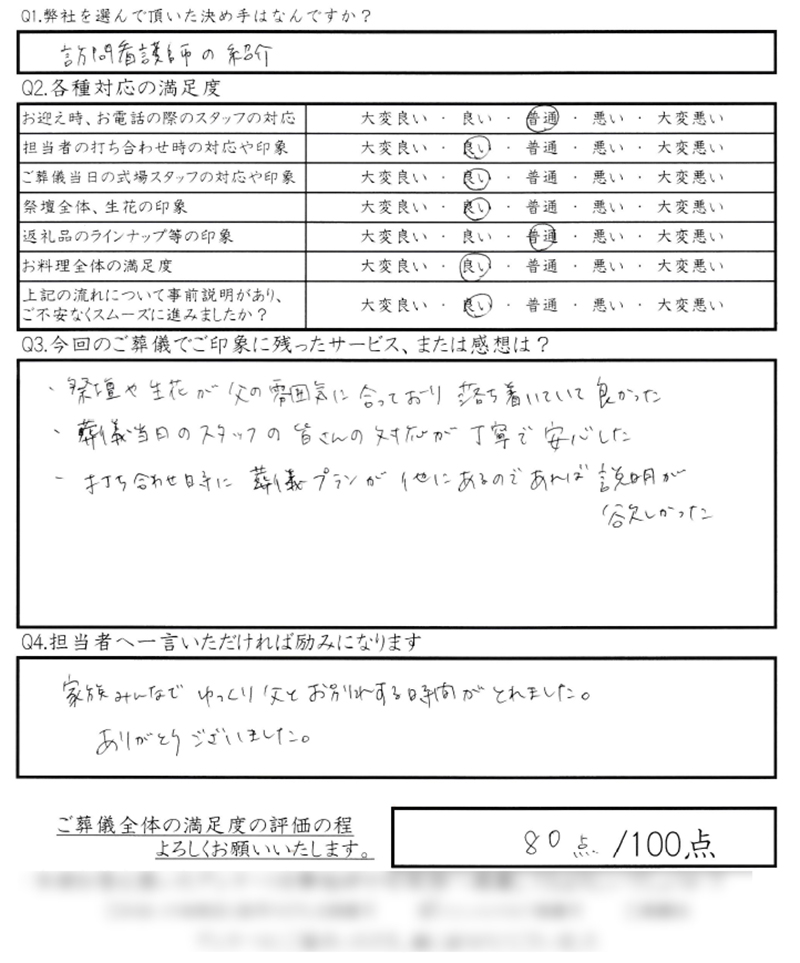 Q1.弊社を選んで頂いた決め手はなんですか？
訪問看護師の紹介
Q2.各種対応の満足度
お迎え時、お電話の際のスタッフの対応 大変良い ・ 良い ・ 普通 ・ 悪い ・ 大変悪い
担当者の打ち合わせ時の対応や印象 大変良い ・ 良い ・ 普通 ・ 悪い ・ 大変悪い
ご葬儀当日の式場スタッフの対応や印象 大変良い ・ 良い ・ 普通 ・ 悪い ・ 大変悪い
祭壇全体、生花の印象 大変良い ・ 良い ・ 普通 ・ 悪い ・ 大変悪い
返礼品のラインナップ等の印象 大変良い ・ 良い ・ 普通 ・ 悪い ・ 大変悪い
お料理全体の満足度 大変良い ・ 良い ・ 普通 ・ 悪い ・ 大変悪い
上記の流れについて事前説明があり、
ご不安なくスムーズに進みましたか？ 大変良い ・ 良い ・ 普通 ・ 悪い ・ 大変悪い
Q3.今回のご葬儀でご印象に残ったサービス、または感想は？
・祭壇や生花が父の雰囲気に合っており落ち着いていて良かった
・葬儀当日のスタッフの皆さんの対応が丁寧で安心した
・打ち合わせ時に葬儀プランが他にあるのであれば説明が
欲しかった
Q4.担当者へ一言いただければ励みになります
家族みんなでゆっくり父とお別れする時間がとれました。
ありがとうございました。
ご葬儀全体の満足度の評価の程
よろしくお願いいたします。
80点 /100点